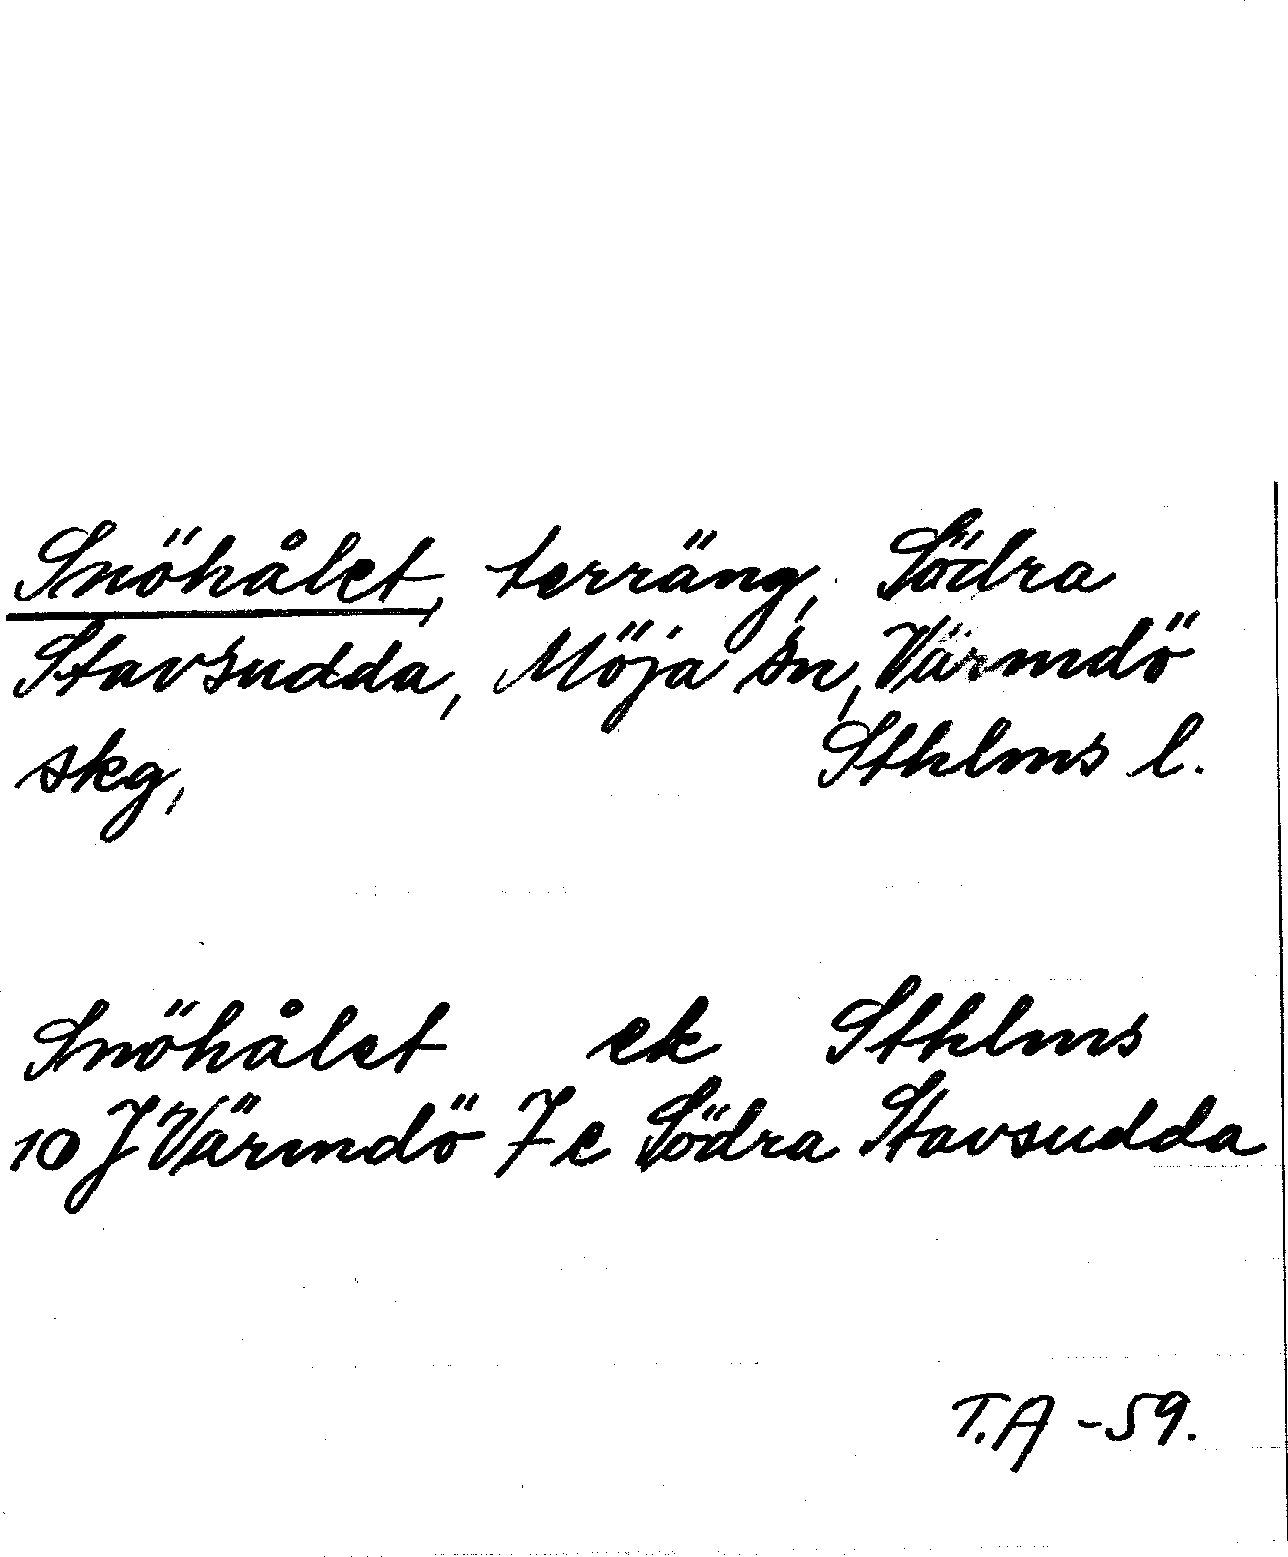 Snöhålet, terräng, Södra
Stavsudda, Möja sn, Värmdö
skg, Sthlms l.
Snöhålet ek Sthlms
10 J Värmdö 7c Södra Stavsudda
T.A -59.